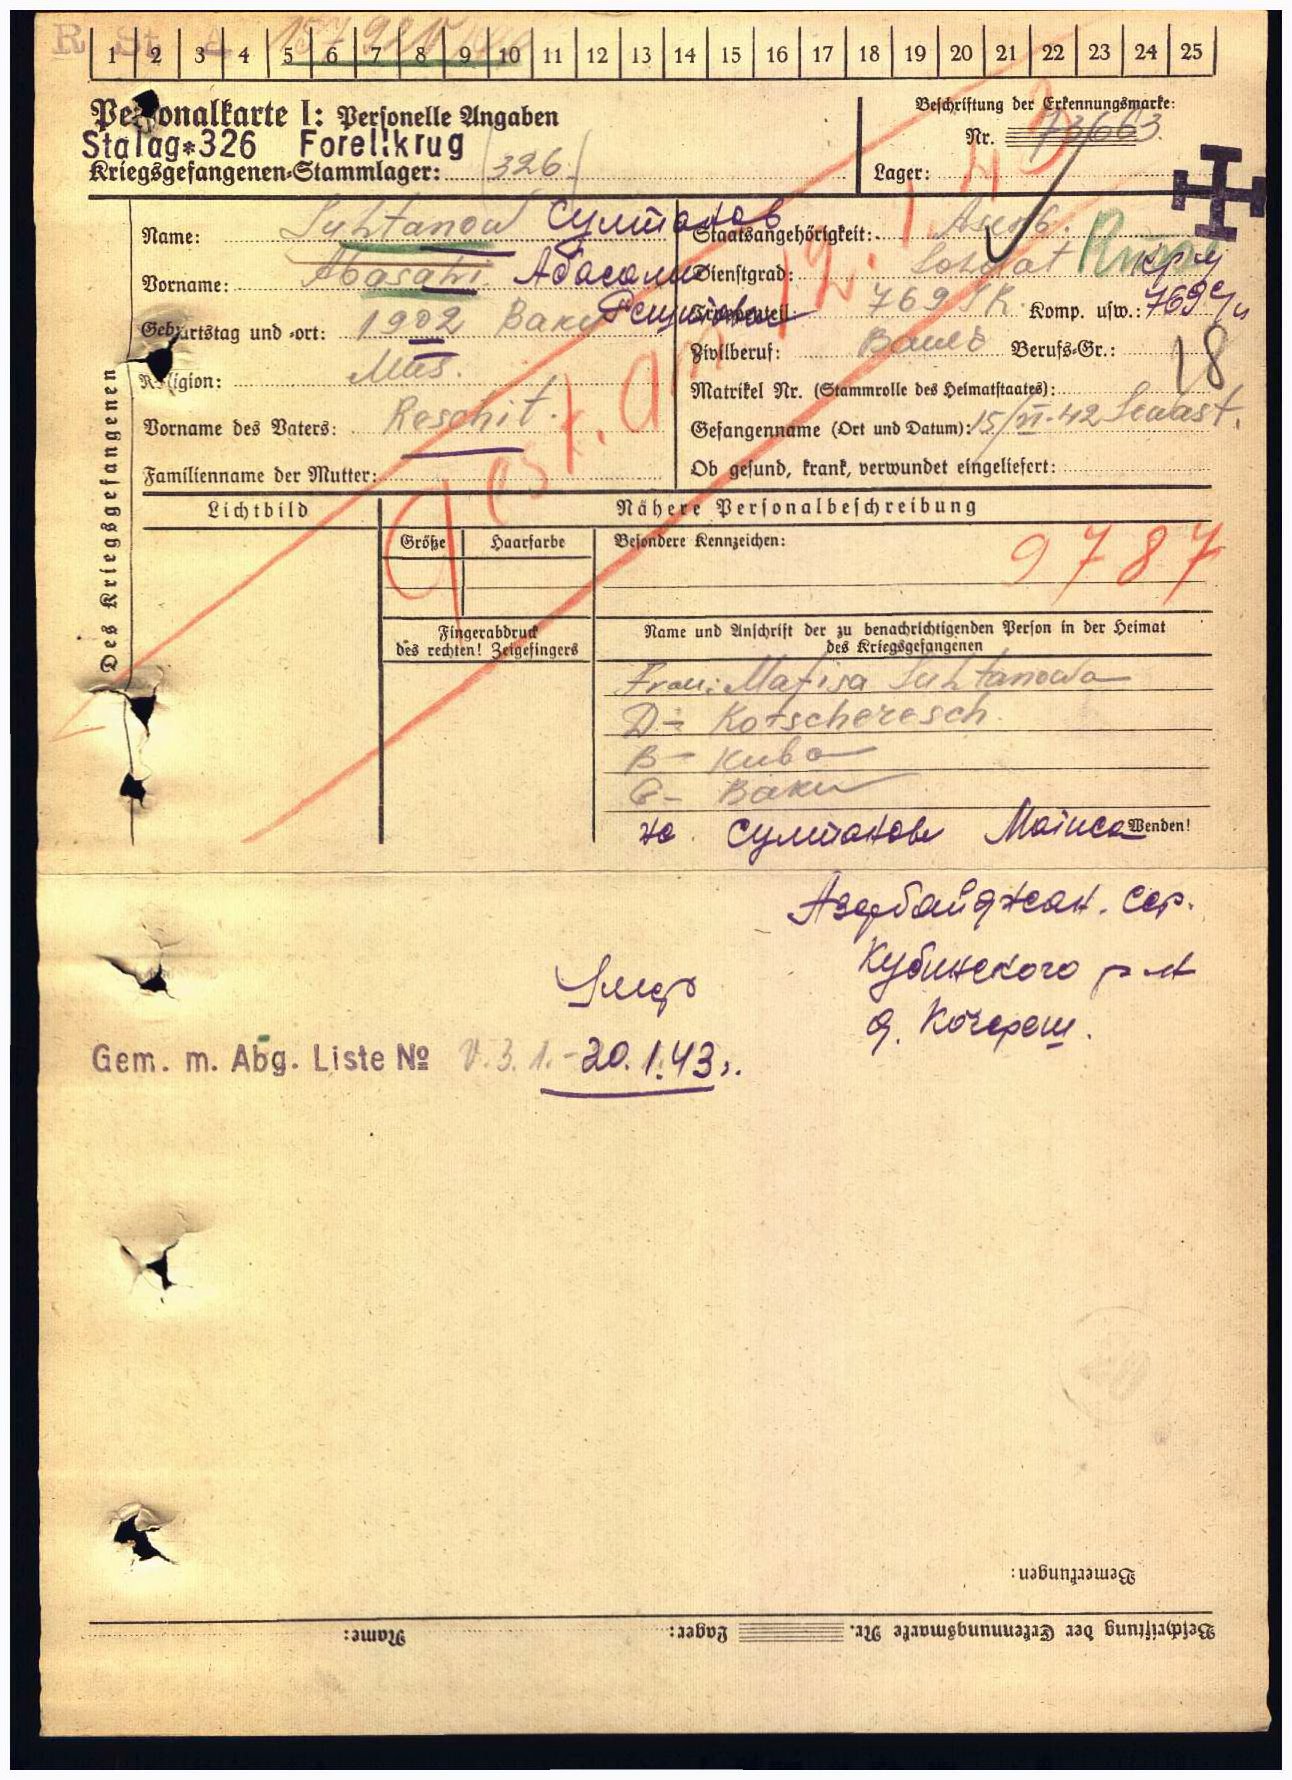 R St A
1 2 3 4 5 6 7 8 9 10 11 12 13 14 15 16 17 18 19 20 21 22 23 24 25
Personalkarte I: Personelle Angaben
Stalag*326 Forellkrug
Kriegsgefangenen-Stammlager: 326
Beschriftung der Erkennungsmarke:
Nr. 73663
Lager:
Des Kriegsgefangenen
Name: Suhtanow Султанов
Vorname: Abasahi Абасали
Решитович
Geburtstag und -ort: 1902 Baku
Religion: Mus.
Vorname des Vaters: Reschit.
Familienname der Mutter:
Staatsangehörigkeit: Aserb. Russe
Dienstgrad: Soldat
Truppenteil: 769 IR Komp. usw.: 769
Zivilberuf: Berufs-Gr.: 18
Matrikel Nr. (Stammrolle des Heimatstaates):
Gefangenname (Ort und Datum): 15/VI.42 Sewast.
Ob gesund, krank, verwundet eingeliefert:
gest. am 12.1.43
Lichtbild
Nähere Personalbeschreibung
Größe Haarfarbe
Besondere Kennzeichen:
9787
Fingerabdruck
des rechten! Zeigefingers
Name und Anschrift der zu benachrichtigenden Person in der Heimat
des Kriegsgefangenen
Frau: Mafisa Suhtanowa
D- Kotscheresch.
B- Kuba
G- Baku
Wenden!
Азербайджан. сср.
Кубинского р-н
д. Кочереш.
Умер
Gem. m. Abg. Liste № V. 3. 1. - 20.1.43.
Bemerkungen:
Beschriftung der Erkennungsmarke Nr. Lager: Name: